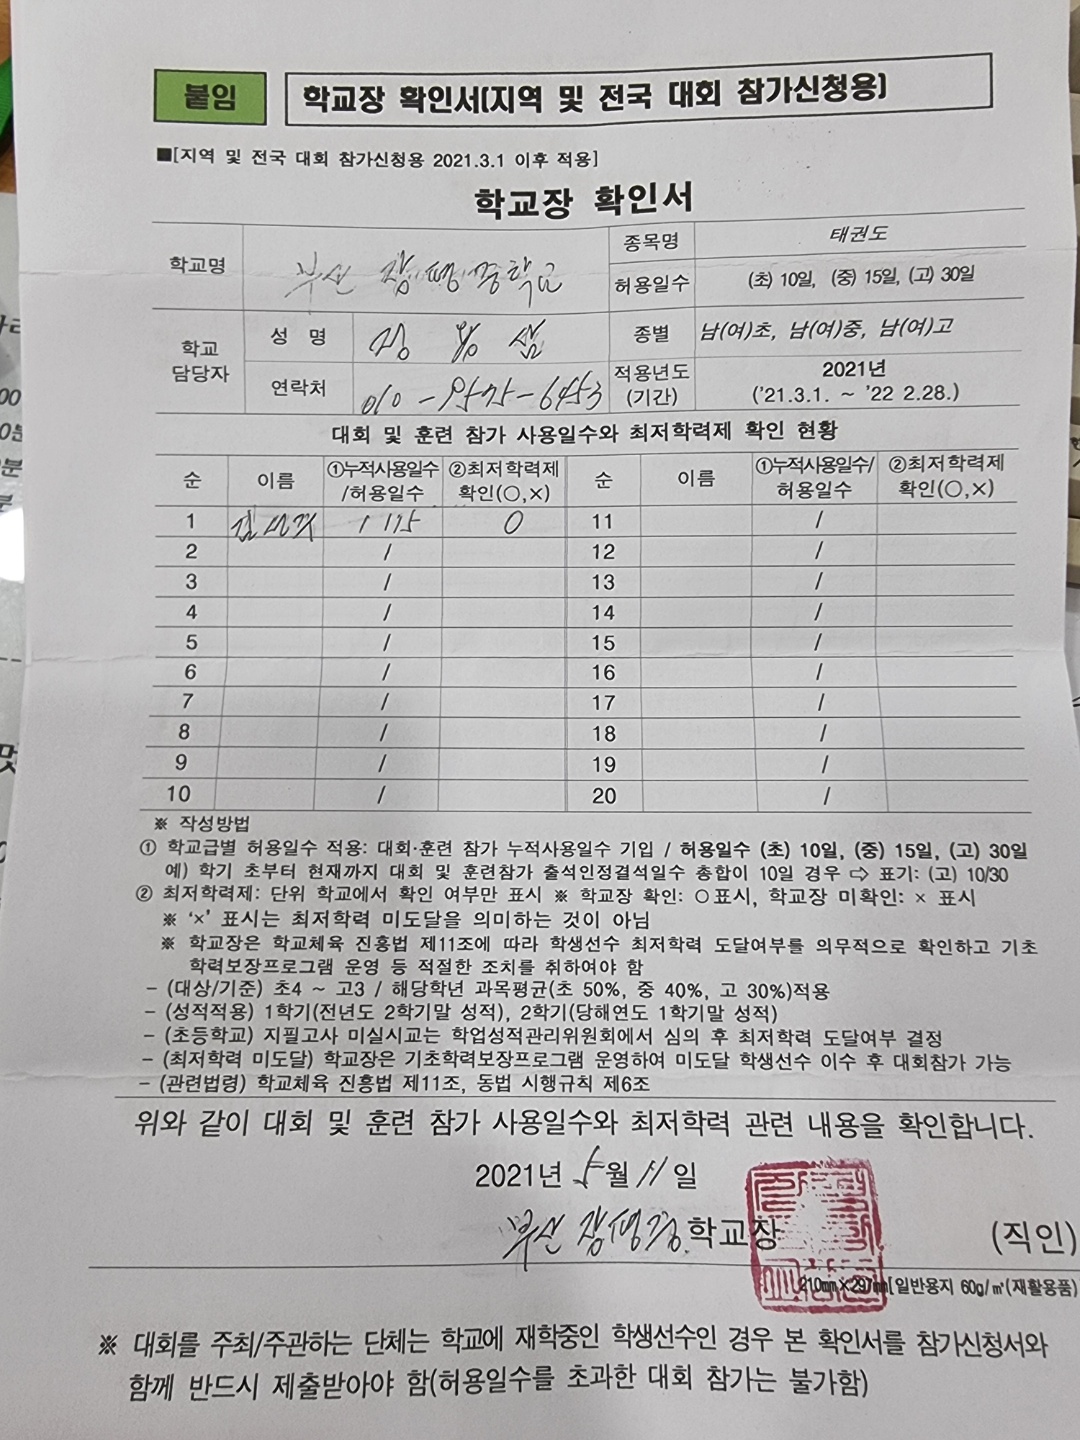 붙임 학교장 확인서(지역 및 전국 대회 참가신청용)
■[지역 및 전국 대회 참가신청용 2021.3.1 이후 적용]
학교장 확인서
학교명 부산 장평중학교 종목명 태권도
허용일수 (초) 10일, (중) 15일, (고) 30일
학교 담당자 성 명 종별 남(여)초, 남(여)중, 남(여)고
연락처 적용년도 (기간) 2021년 ('21.3.1. ~ '22 2.28.)
대회 및 훈련 참가 사용일수와 최저학력제 확인 현황
순 이름 ①누적사용일수/허용일수 ②최저학력제 확인(○,×) 순 이름 ①누적사용일수/허용일수 ②최저학력제 확인(○,×)
1 1/15 O 11 /
2 / 12 /
3 / 13 /
4 / 14 /
5 / 15 /
6 / 16 /
7 / 17 /
8 / 18 /
9 / 19 /
10 / 20 /
※ 작성방법
① 학교급별 허용일수 적용: 대회·훈련 참가 누적사용일수 기입 / 허용일수 (초) 10일, (중) 15일, (고) 30일
예) 학기 초부터 현재까지 대회 및 훈련참가 출석인정결석일수 총합이 10일 경우 ⇨ 표기: (고) 10/30
② 최저학력제: 단위 학교에서 확인 여부만 표시 ※ 학교장 확인: ○표시, 학교장 미확인: × 표시
※ '×' 표시는 최저학력 미도달을 의미하는 것이 아님
※ 학교장은 학교체육 진흥법 제11조에 따라 학생선수 최저학력 도달여부를 의무적으로 확인하고 기초
학력보장프로그램 운영 등 적절한 조치를 취하여야 함
- (대상/기준) 초4 ~ 고3 / 해당학년 과목평균(초 50%, 중 40%, 고 30%)적용
- (성적적용) 1학기(전년도 2학기말 성적), 2학기(당해연도 1학기말 성적)
- (초등학교) 지필고사 미실시교는 학업성적관리위원회에서 심의 후 최저학력 도달여부 결정
- (최저학력 미도달) 학교장은 기초학력보장프로그램 운영하여 미도달 학생선수 이수 후 대회참가 가능
- (관련법령) 학교체육 진흥법 제11조, 동법 시행규칙 제6조
위와 같이 대회 및 훈련 참가 사용일수와 최저학력 관련 내용을 확인합니다.
2021년 5월 11일
부산 장평중학교장 (직인)
210㎜×297㎜[일반용지 60g/㎡(재활용품)
※ 대회를 주최/주관하는 단체는 학교에 재학중인 학생선수인 경우 본 확인서를 참가신청서와
함께 반드시 제출받아야 함(허용일수를 초과한 대회 참가는 불가함)